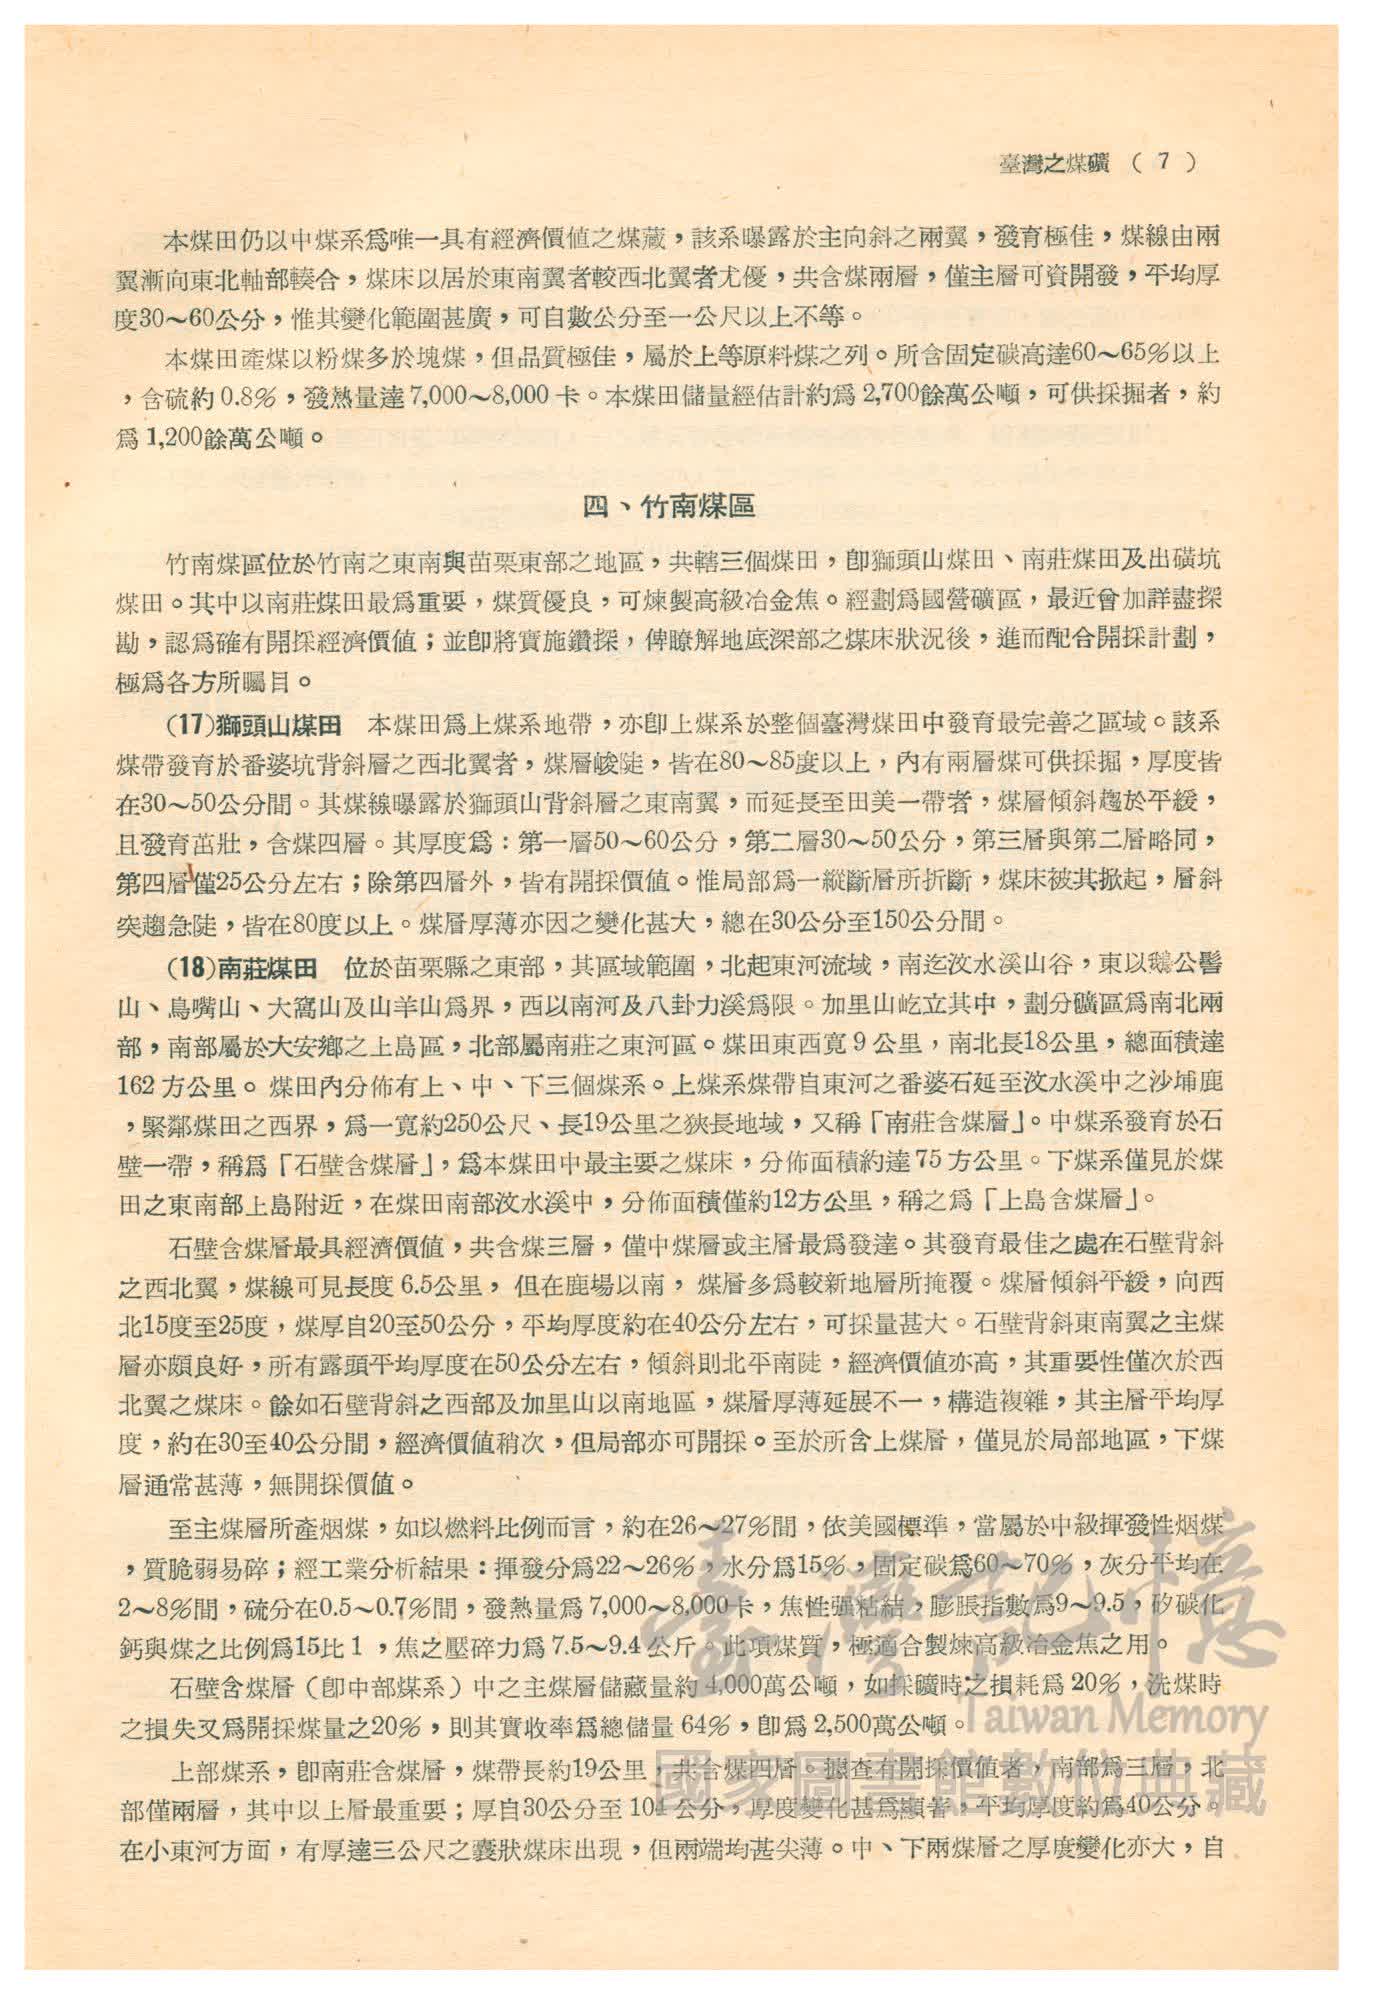 臺灣之煤礦 ( 7 )
本煤田仍以中煤系爲唯一具有經濟價值之煤藏，該系曝露於主向斜之兩翼，發育極佳，煤線由兩
翼漸向東北軸部輳合，煤床以居於東南翼者較西北翼者尤優，共含煤兩層，僅主層可資開發，平均厚
度30～60公分，惟其變化範圍甚廣，可自數公分至一公尺以上不等。
本煤田產煤以粉煤多於塊煤，但品質極佳，屬於上等原料煤之列。所含固定碳高達60～65%以上
，含硫約0.8%，發熱量達7,000～8,000卡。本煤田儲量經估計約爲2,700餘萬公噸，可供採掘者，約
爲1,200餘萬公噸。
四、竹南煤區
竹南煤區位於竹南之東南與苗栗東部之地區，共轄三個煤田，卽獅頭山煤田、南莊煤田及出磺坑
煤田。其中以南莊煤田最爲重要，煤質優良，可煉製高級冶金焦。經劃爲國營礦區，最近曾加詳盡探
勘，認爲確有開採經濟價值；並卽將實施鑽探，俾瞭解地底深部之煤床狀況後，進而配合開採計劃，
極爲各方所矚目。
(17)獅頭山煤田　本煤田爲上煤系地帶，亦卽上煤系於整個臺灣煤田中發育最完善之區域。該系
煤帶發育於番婆坑背斜層之西北翼者，煤層峻陡，皆在80～85度以上，內有兩層煤可供採掘，厚度皆
在30～50公分間。其煤線曝露於獅頭山背斜層之東南翼，而延長至田美一帶者，煤層傾斜趨於平緩，
且發育茁壯，含煤四層。其厚度爲：第一層50～60公分，第二層30～50公分，第三層與第二層略同，
第四層僅25公分左右；除第四層外，皆有開採價值。惟局部爲一縱斷層所折斷，煤床被其掀起，層斜
突趨急陡，皆在80度以上。煤層厚薄亦因之變化甚大，總在30公分至150公分間。
(18)南莊煤田　位於苗栗縣之東部，其區域範圍，北起東河流域，南迄汶水溪山谷，東以鵝公髻
山、鳥嘴山、大窩山及山羊山爲界，西以南河及八卦力溪爲限。加里山屹立其中，劃分礦區爲南北兩
部，南部屬於大安鄉之上島區，北部屬南莊之東河區。煤田東西寬9公里，南北長18公里，總面積達
162方公里。煤田內分佈有上、中、下三個煤系。上煤系煤帶自東河之番婆石延至汶水溪中之沙埔鹿
，緊鄰煤田之西界，爲一寬約250公尺、長19公里之狹長地域，又稱「南莊含煤層」。中煤系發育於石
壁一帶，稱爲「石壁含煤層」，爲本煤田中最主要之煤床，分佈面積約達75方公里。下煤系僅見於煤
田之東南部上島附近，在煤田南部汶水溪中，分佈面積僅約12方公里，稱之爲「上島含煤層」。
石壁含煤層最具經濟價值，共含煤三層，僅中煤層或主層最爲發達。其發育最佳之處在石壁背斜
之西北翼，煤線可見長度6.5公里，但在鹿場以南，煤層多爲較新地層所掩覆。煤層傾斜平緩，向西
北15度至25度，煤厚自20至50公分，平均厚度約在40公分左右，可採量甚大。石壁背斜東南翼之主煤
層亦頗良好，所有露頭平均厚度在50公分左右，傾斜則北平南陡，經濟價值亦高，其重要性僅次於西
北翼之煤床。餘如石壁背斜之西部及加里山以南地區，煤層厚薄延展不一，構造複雜，其主層平均厚
度，約在30至40公分間，經濟價值稍次，但局部亦可開採。至於所含上煤層，僅見於局部地區，下煤
層通常甚薄，無開採價值。
至主煤層所產烟煤，如以燃料比例而言，約在26～27%間，依美國標準，當屬於中級揮發性烟煤
，質脆弱易碎；經工業分析結果：揮發分爲22～26%，水分爲15%，固定碳爲60～70%，灰分平均在
2～8%間，硫分在0.5～0.7%間，發熱量爲7,000～8,000卡，焦性强粘結，膨脹指數爲9～9.5，矽碳化
鈣與煤之比例爲15比1，焦之壓碎力爲7.5～9.4公斤。此項煤質，極適合製煉高級冶金焦之用。
石壁含煤層（卽中部煤系）中之主煤層儲藏量約4,000萬公噸，如採礦時之損耗爲20%，洗煤時
之損失又爲開採煤量之20%，則其實收率爲總儲量64%，卽爲2,500萬公噸。
上部煤系，卽南莊含煤層，煤帶長約19公里，共含煤四層。據查有開採價值者，南部爲三層，北
部僅兩層，其中以上層最重要；厚自30公分至10公分，厚度變化甚爲顯著，平均厚度約爲40公分。
在小東河方面，有厚達三公尺之囊狀煤床出現，但兩端均甚尖薄。中、下兩煤層之厚度變化亦大，自
臺灣記憶
Taiwan Memory
國家圖書館數位典藏